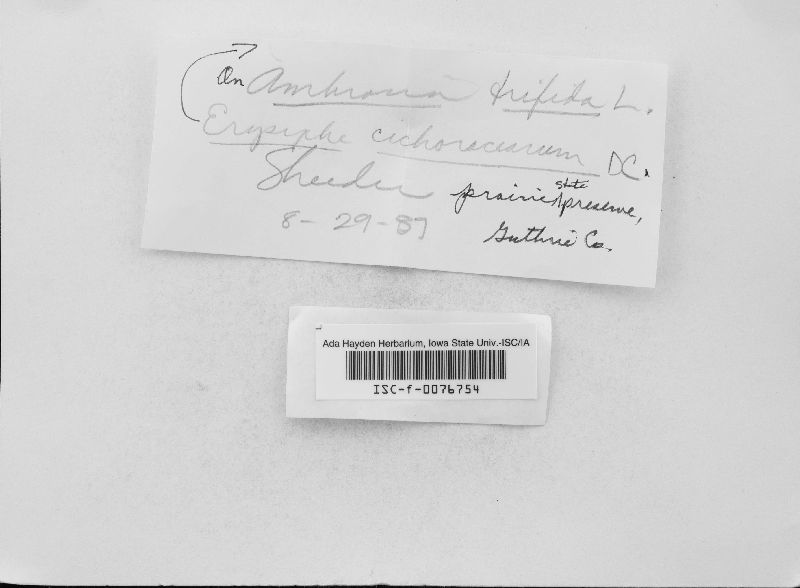 On Ambrosia trifida L.
Erysiphe cichoracearum DC.
Sheeder prairie state preserve,
8-29-87 Guthrie Co.
Ada Hayden Herbarium, Iowa State Univ.-ISC/IA
ISC-f-0076754